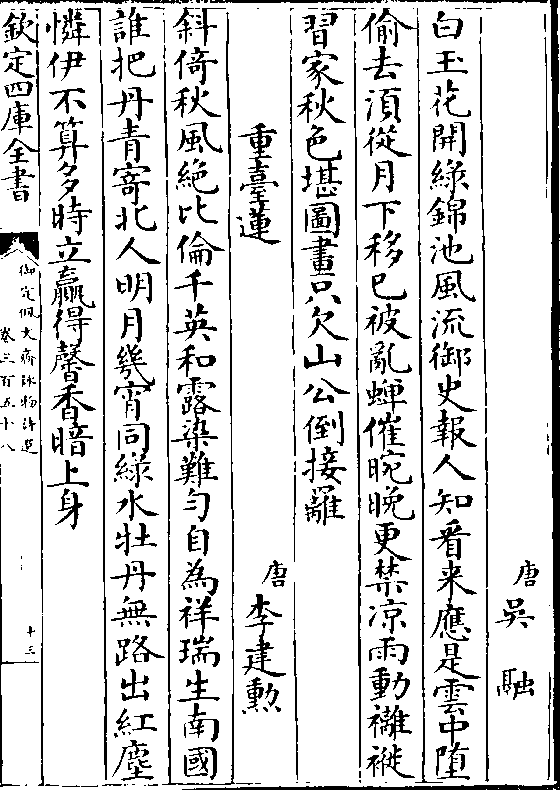 唐吳融
白玉花開綠錦池風流御史報人知看来應是雲中堕
偷去湏從月下移已被亂蟬催晼晚更禁凉雨動襹褷
習家秋色堪圖畫只欠山公倒接䍦
重臺蓮
唐李建勲
斜倚秋風絶比倫千英和露染難勻自為祥瑞生南國
誰把丹青寄北人明月幾宵同綠水牡丹無路出紅塵
憐伊不算多時立贏得馨香暗上身
欽定四庫全書
御定佩文齋詠物詩選
卷三百五十八
十三